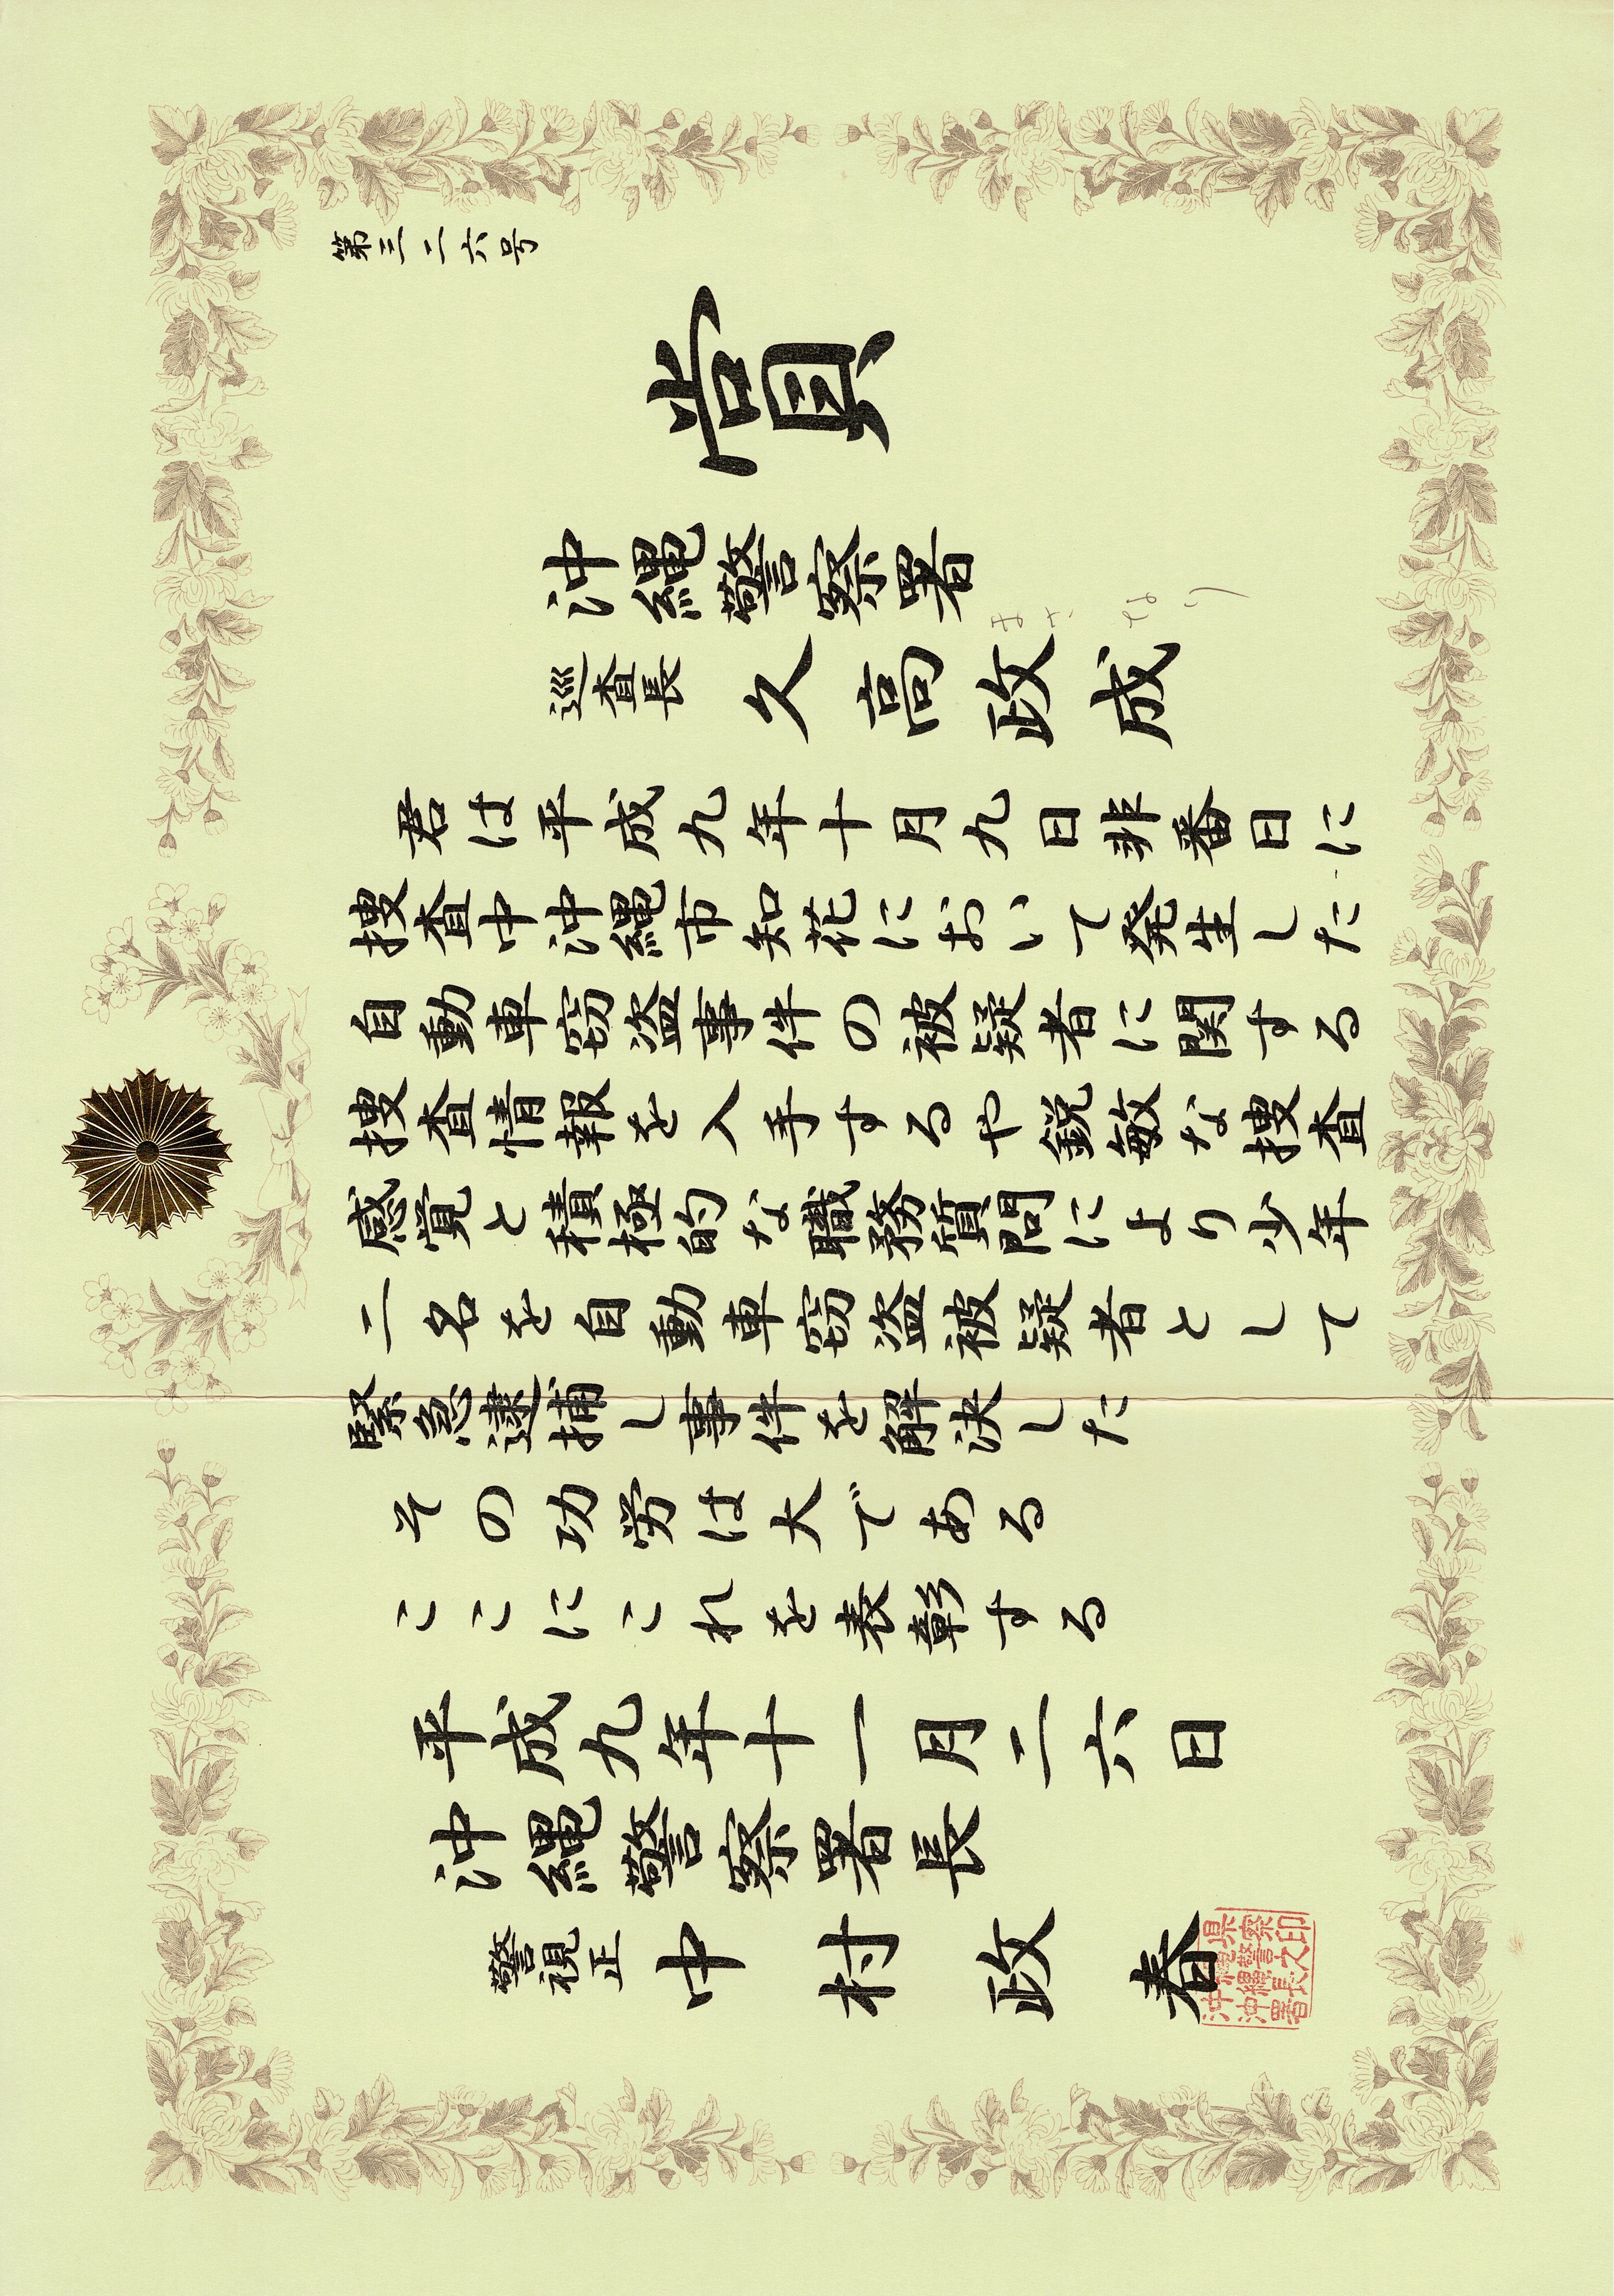 第三二六号
賞
沖縄警察署
巡査長 久高政成
まさ なり
君は平成九年十月九日非番日に
捜査中沖縄市知花において発生した
自動車窃盗事件の被疑者に関する
捜査情報を入手するや鋭敏な捜査
感覚と積極的な職務質問により少年
二名を自動車窃盗被疑者として
緊急逮捕し事件を解決した
その功労は大である
ここにこれを表彰する
平成九年十一月二六日
沖縄警察署長
警視正 中村政春
沖縄県
沖縄警察
署長之印